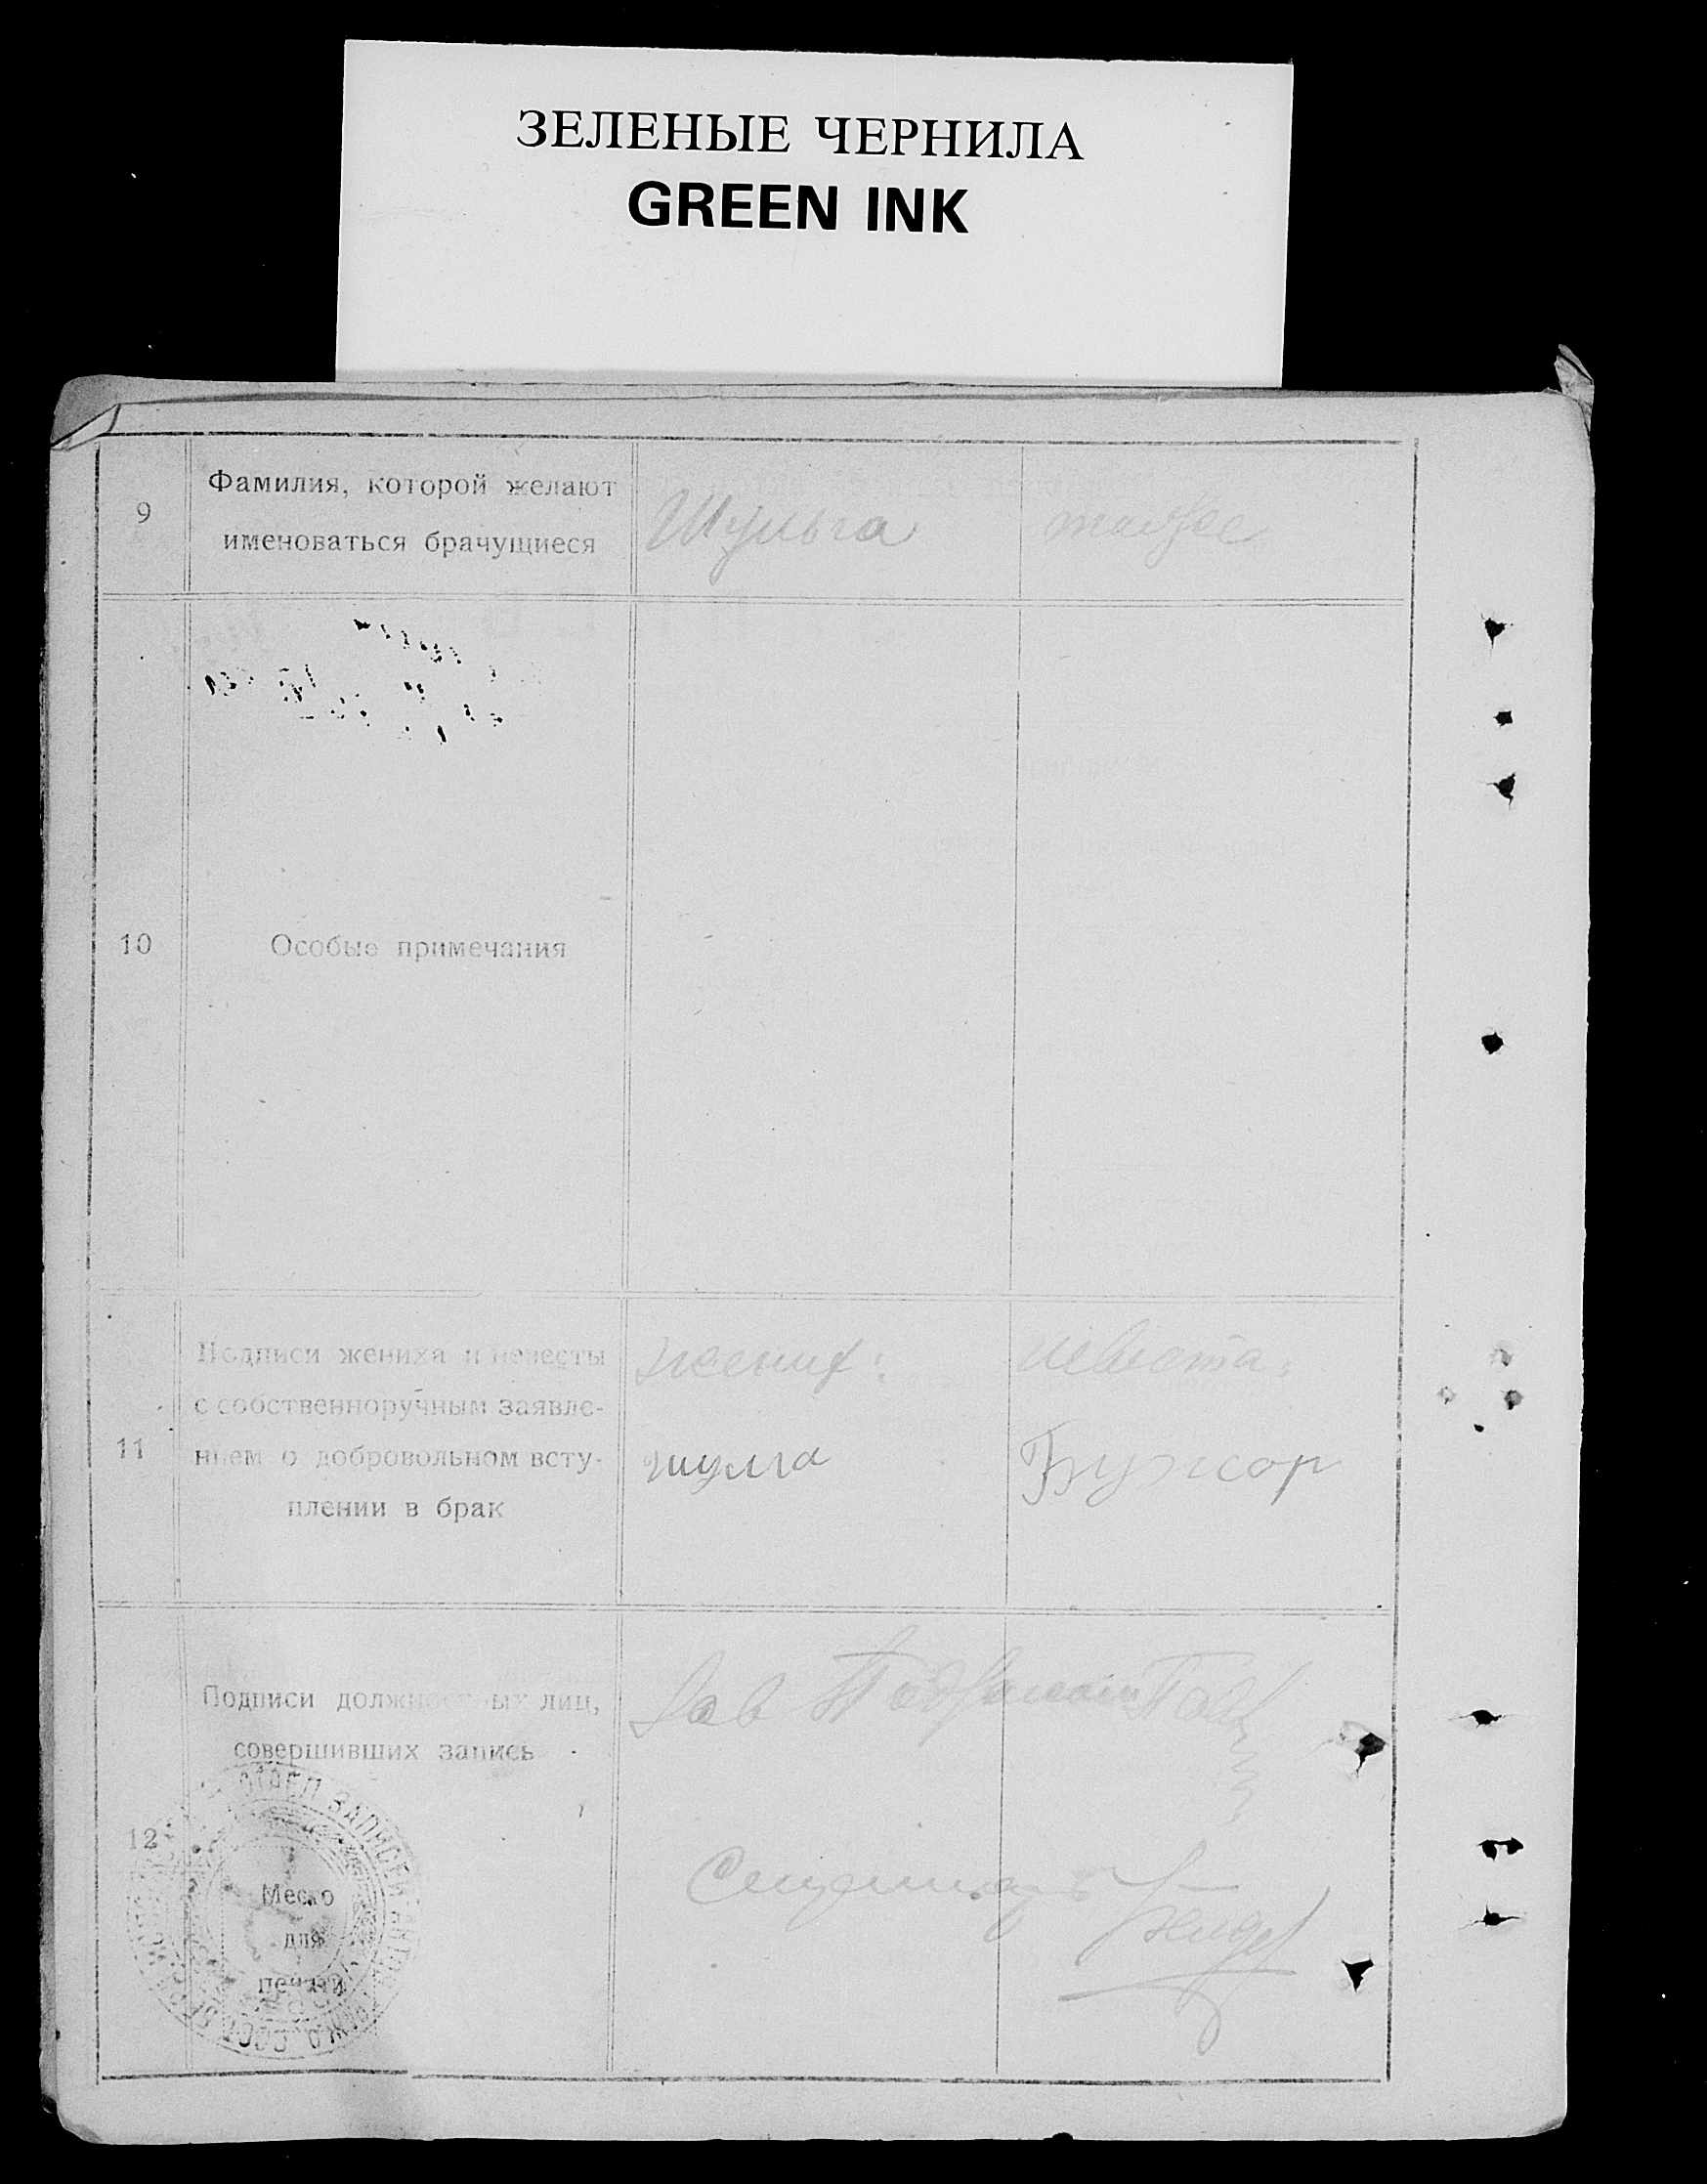 ЗЕЛЕНЫЕ ЧЕРНИЛА
GREEN INK
9
Фамилия, которой желают
именоваться брачущиеся
Шульга
также
10
Особые примечания
11
Подписи жениха и невесты
с собственноручным заявле-
нием о добровольном всту-
плении в брак
жених:
невеста:
шулга
Бужор
12
Подписи должностных лиц,
совершивших запись
Зав
Место
для
печати